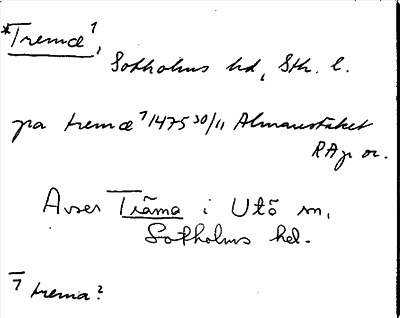 *Tremæ⁷,
Sotholms hd, Sth. l.
pa tremæ⁷ 1475 30/11 Almarestäket
RAp or.
Avser Träma i Utö sn,
Sotholms hd.
⁷ trema?